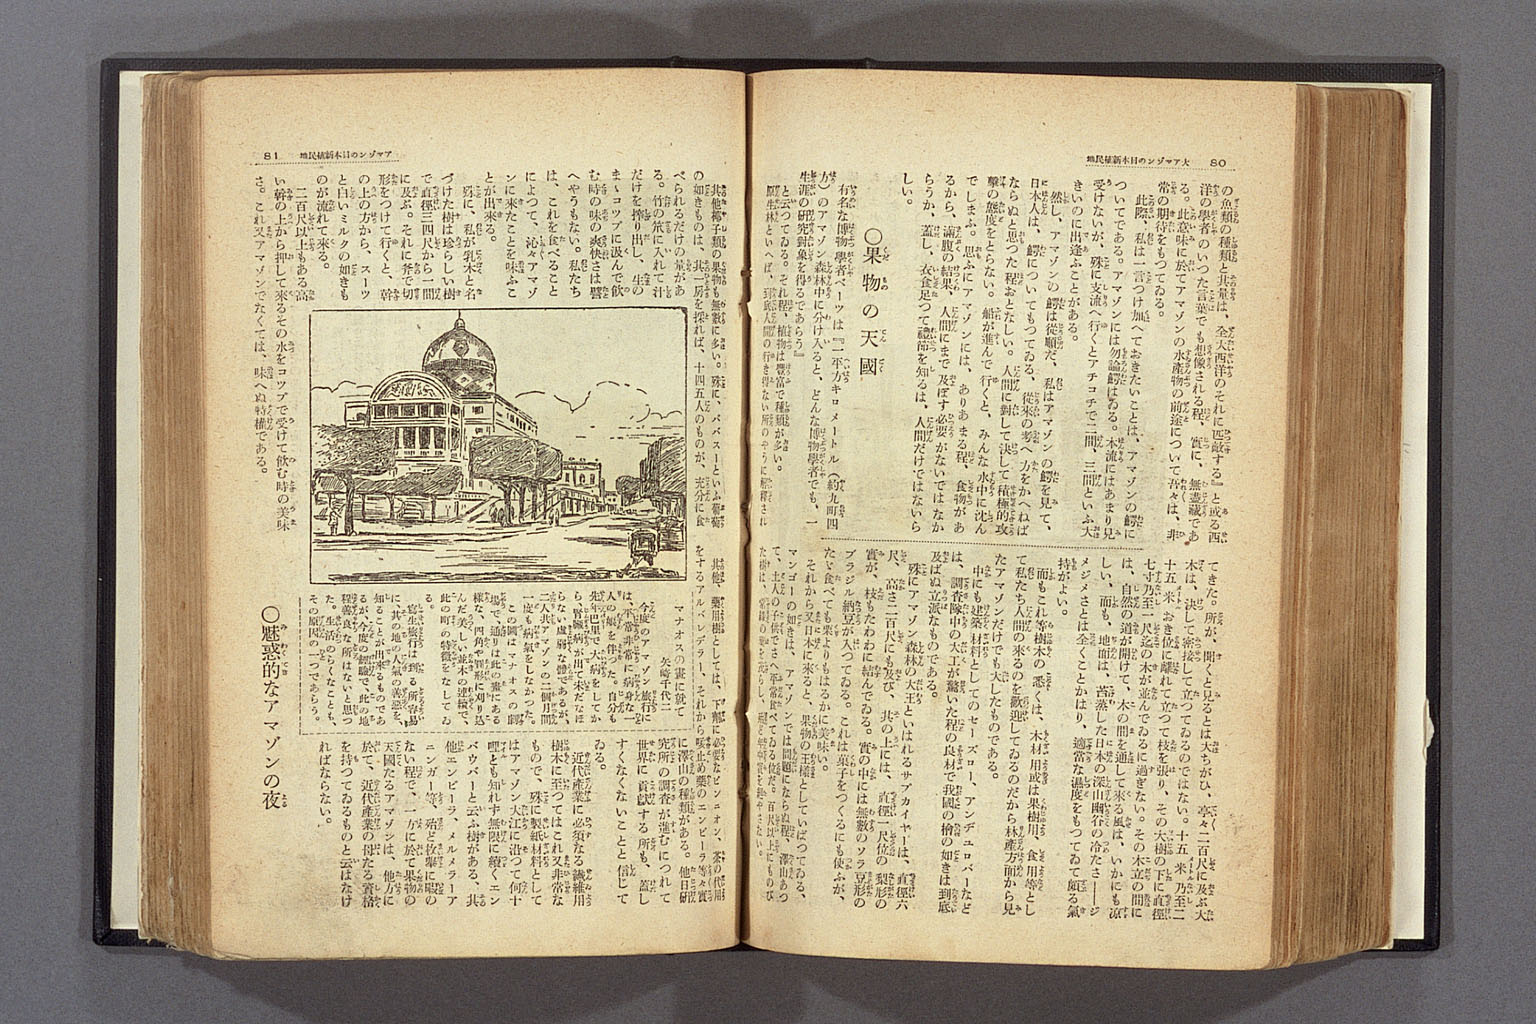 大アマゾンの日本新植民地 80
の魚類の種類と其量は、全大西洋のそれに匹敵する』と或る西
洋の學者のいつた言葉でも想像される程、實に、無盡藏であ
る。此意味に於てアマゾンの水產物の前途について吾々は、非
常の期待をもつてゐる。
此際、私は一言つけ加へておきたいことは、アマゾンの鰐に
ついてである。アマゾンには勿論鰐はゐる。本流にはあまり見
受けないが、殊に支流へ行くとアチコチで二間、三間といふ大
きいのに出逢ふことがある。
然し、アマゾンの鰐は從順だ、私はアマゾンの鰐を見て、
日本人は、鰐についてもつてゐる、從來の考へ方をかへねば
ならぬと思つた程おとなしい。人間に對して決して積極的攻
擊の態度をとらない。船が進んで行くと、みんな水中に沈ん
でしまふ。思ふにアマゾンには、ありあまる程、食物があ
るから、滿腹の結果、人間にまで及ぼす必要がないではなか
らうか、蓋し、衣食足つて禮節を知るは、人間だけではないら
しい。
〇果物の天國
有名な博物學者ベーツは『一平方キロメートル(約九町四
方)のアマゾン森林中に分け入ると、どんな博物學者でも、一
生涯の研究對象を得るであらう』
と云つてゐる。それ程、植物は豐富で種類が多い。
原生林といへば、到底人間の行き得ない所のやうに解釋され
てきた。所が、聞くと見るとは大ちがひ、亭々二百尺に及ぶ大
木は、決して密接して立つてゐるのではない。十五米乃至二
十五米おき位に離れて立つて枝を張り、その大樹の下に直徑
七寸乃至一尺迄の木が並んでゐるに過ぎない。その木立の間に
は、自然の道が開けて、木の間を通して來る風は、いかにも凉
しい、而も、地面は、苔蒸した日本の深山幽谷の冷たさ――ジ
メジメさとは全くことかはり、適當な濕度をもつてゐて頗る氣
持がよい。
而もこれ等樹木の悉くは、木材用或は果樹用、食用等とし
て私たち人間の來るのを歡迎してゐるのだから林產方面から見
たアマゾンだけでも大したものである。
中にも建築材料としてのセーズロー、アンデュロバーなど
は、調査隊中の大工が驚いた程の良材で我國の檜の如きは到底
及ばぬ立派なものである。
殊にアマゾン森林の大王といはれるサプカイヤーは、直徑六
尺、高さ二百尺にも及び、其の上には、直徑一尺位の梨形の
實が、枝もたわわに結んでゐる。實の中には無數のソラ豆形の
ブラジル納豆が入つてゐる。これは菓子をつくるにも使ふが、
たゞ食べても栗よりもはるかに美味い。
それから又日本に來ると、果物の王樣としていばつてゐる、
マンゴーの如きは、アマゾンでは問題にならぬ程、澤山あつ
て、土人の子供でさへ平常食べてゐる位だ。百尺以上にものび
81 アマゾンの日本新植民地
其他椰子類の果物も無數に多い。殊に、バスーといふ葡萄
の如きものは、其一房を採れば、十四五人のものが、充分に食
べられるだけの量があ
る。竹の笊に入れて汁
だけを搾り出し、生の
まゝコツプに汲んで飮
む時の味の爽快さは譬
へやうもない。私たち
は、これを食べること
によつて、沁々アマゾ
ンに來たことを味ふこ
とが出來る。
殊に、私が乳木と名
づけた樹は珍らしい樹
で直徑三四尺から一間
に及ぶ。それに斧で切
形をつけて行くと、幹
の上の方から、スーツ
と白いミルクの如きも
のが流れて來る。
二百尺以上もある高
い幹の上から押して來るその水をコツプで受けて飮む時の美味
さ。これ又アマゾンでなくては、味へぬ特權である。
マナオスの畫に就て
矢崎千代二
今度のアマゾン旅行に
は、平常非常に病身な一
人の娘を伴つた。自分も
先年巴里で大病をしてか
ら腎臟病が出て未だなほ
らない虛弱な體であるが、
二人共アマゾンの二個月間
一度も病氣をしなかつた。
この圖はマナオスの劇
場で、通りは此の畫にある
樣な、四角や圓形に刈り込
んだ美しい並木の連續で、
此の町の特徵をなしてゐ
る。
寫生旅行は到る所容易
に其の地の人氣の善惡を
知ることが出來るものであ
るが、今度の經驗で此の地
程善良な所はないと思つ
た。生活のらくなことも、
その原因の一つであらう。
其他、藥用樹としては、下劑に必要なビンニオン、茶の代用
をするアルバレデラー、それから咳止め藥のエンビーラ等々實
に澤山の種類がある。他日硏
究所の調査が進むにつれて
世界に貢獻する所も、蓋し
すくなくないことと信じて
ゐる。
近代產業に必須なる纖維用
樹木に至つてはこれ又非常な
もので、殊に製紙材料として
はアマゾン大江に沿つて何十
哩とも知れず無限に續くエン
バウバーと云ふ樹がある、其
他エンビーラ、メルメラーア
ニンガー等、殆ど枚擧に暇の
ない程で、一方に於て果物の
天國たるアマゾンは、他方に
於て、近代產業の母たる資格
を持つてゐるものと云はなけ
ればならない。
〇魅惑的なアマゾンの夜